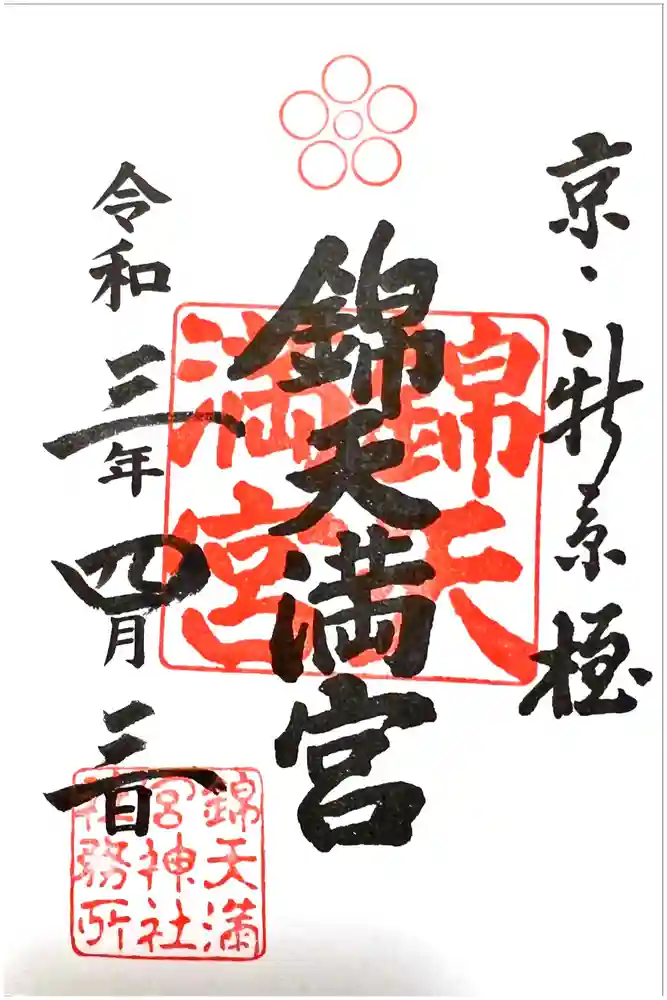 京・新京極
錦天満宮
錦天満宮
令和三年四月三日
錦天満
宮神社
社務所